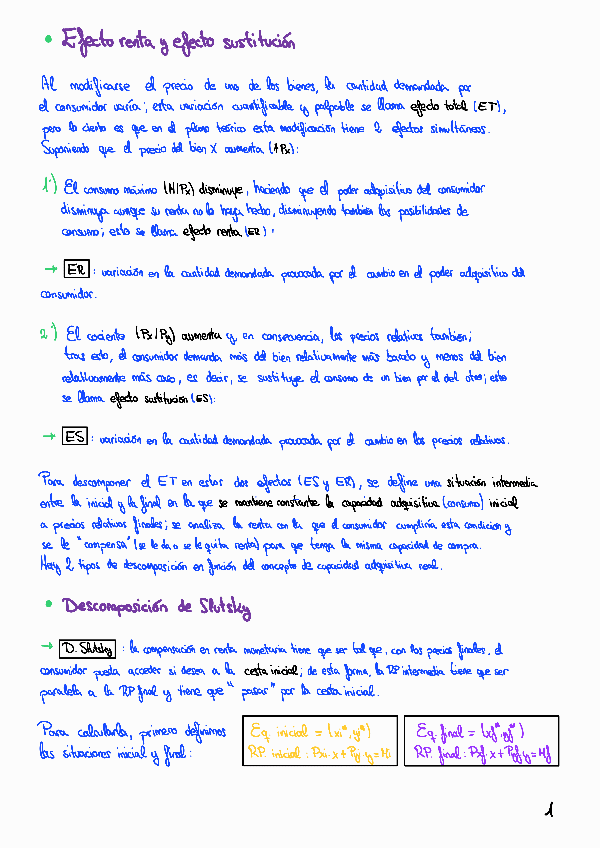 • Efecto renta y efecto sustitución
Al modificarse el precio de uno de los bienes, la cantidad demandada por
el consumidor varía; esta variación cuantificable y palpable se llama efecto total (ET),
pero lo cierto es que en el plano teórico esta modificación tiene 2 efectos simultáneos.
Suponiendo que el precio del bien X aumenta (↑Px):
1º) El consumo máximo (M/Px) disminuye, haciendo que el poder adquisitivo del consumidor
disminuya aunque su renta no lo haya hecho, disminuyendo también las posibilidades de
consumo; esto se llama efecto renta (ER):
→ ER : variación en la cantidad demandada provocada por el cambio en el poder adquisitivo del
consumidor.
2º) El cociente (Px/Py) aumenta y, en consecuencia, los precios relativos también;
tras esto, el consumidor demanda más del bien relativamente más barato y menos del bien
relativamente más caro, es decir, se sustituye el consumo de un bien por el del otro; esto
se llama efecto sustitución (ES):
→ ES : variación en la cantidad demandada provocada por el cambio en los precios relativos.
Para descomponer el ET en estos dos efectos (ES y ER), se define una situación intermedia
entre la inicial y la final en la que se mantiene constante la capacidad adquisitiva (consumo) inicial
a precios relativos finales; se analiza la renta con la que el consumidor cumpliría esta condición y
se le "compensa" (se le da o se le quita renta) para que tenga la misma capacidad de compra.
Hay 2 tipos de descomposición en función del concepto de capacidad adquisitiva real.
• Descomposición de Slutsky
→ D. Slutsky : la compensación en renta monetaria tiene que ser tal que, con los precios finales, el
consumidor pueda acceder si desea a la cesta inicial; de esta forma, la RP intermedia tiene que ser
paralela a la RP final y tiene que "pasar" por la cesta inicial.
Para calcularla, primero definimos
las situaciones inicial y final:
Eq. inicial = (xi*, yi*)
RP. inicial: Pxi·x + Pyi·y = Mi
Eq. final = (xf*, yf*)
RP. final: Pxf·x + Pyf·y = Mf
1